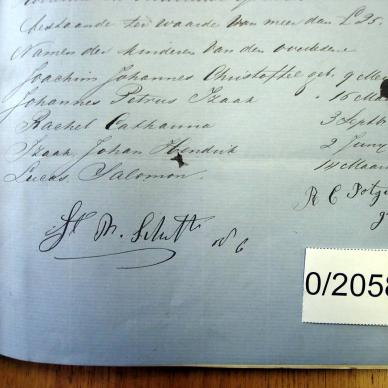 bestaande ter waarde van meer dan £25.
Namen der kinderen van den overledene
Joachim Johannes Christoffel geb. 9 Mei
Johannes Petrus Izaak " 15 Maa
Rachel Catharina 3 Septb
Izaak Johan Hendrik 2 Juny
Lucas Salomon. 14 Maar
R C Potgi
0/2058